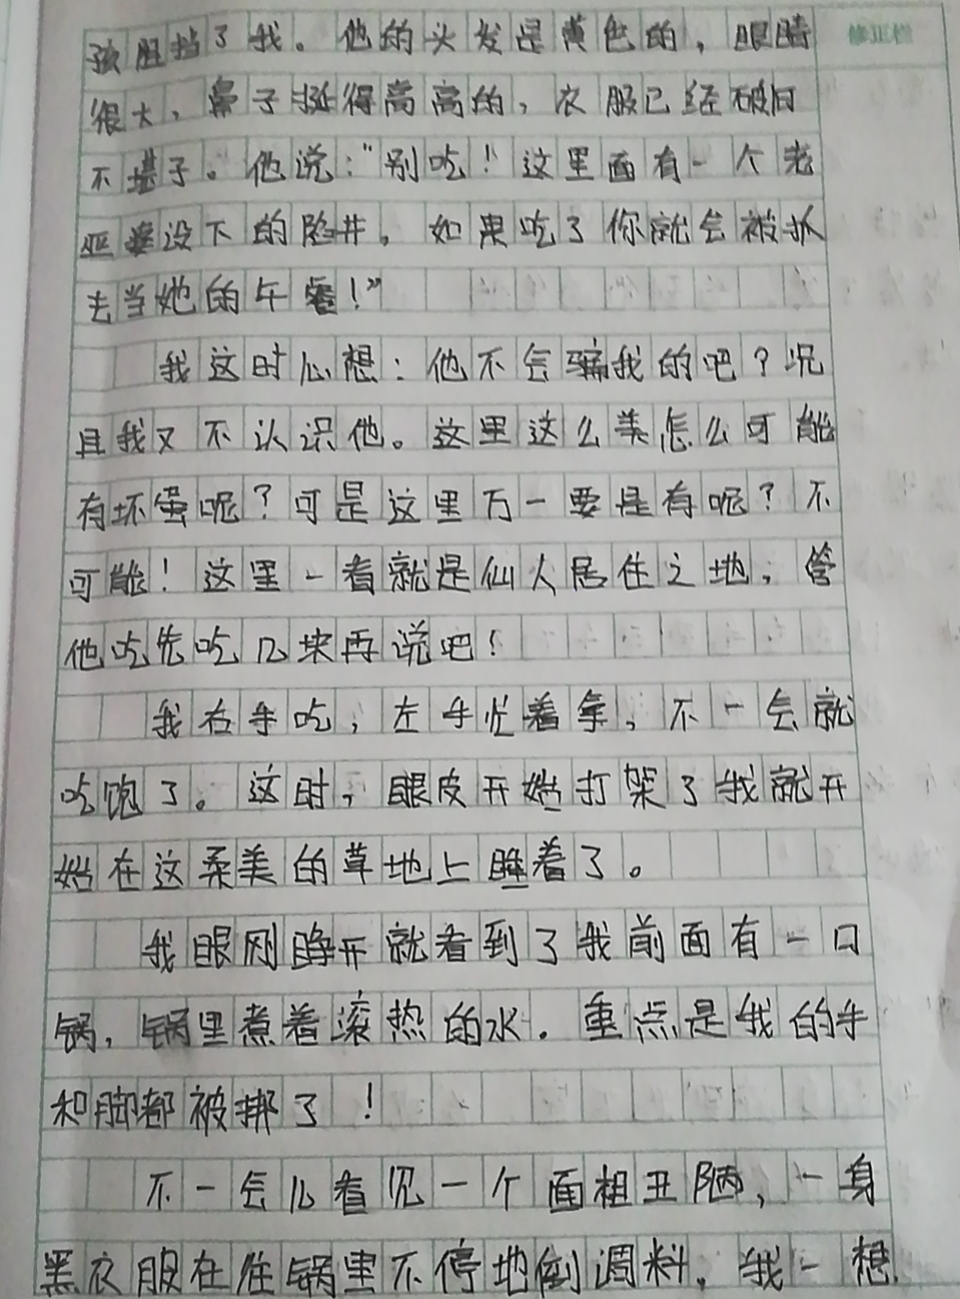 孩阻挡了我。他的头发是黄色的，眼睛
修正栏
很大，鼻子挺得高高的，衣服已经破旧
不堪了。他说："别吃！这里面有一个老
巫婆设下的陷井，如果吃了你就会被抓
去当她的午餐！"
我这时心想：他不会骗我的吧？况
且我又不认识他。这里这么美怎么可能
有坏蛋呢？可是这里万一要是有呢？不
可能！这里一看就是仙人居住之地，管
他吃先吃几块再说吧！
我右手吃，左手忙着拿，不一会就
吃饱了。这时，眼皮开始打架了我就开
始在这柔美的草地上睡着了。
我眼刚睁开就看到了我前面有一口
锅，锅里煮着滚热的水。重点是我的手
和脚都被绑了！
不一会儿看见一个面祖丑陋，一身
黑衣服在往锅里不停地倒调料。我一想